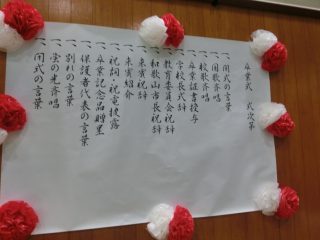 卒業式 式次第
一、開式の言葉
一、国歌斉唱
一、校歌斉唱
一、卒業証書授与
一、学校長式辞
一、教育委員会祝辞
一、和歌山市長祝辞
一、来賓祝辞
一、来賓紹介
一、祝詞・祝電披露
一、卒業記念品贈呈
一、保護者代表の言葉
一、別れの言葉
一、蛍の光斉唱
一、閉式の言葉